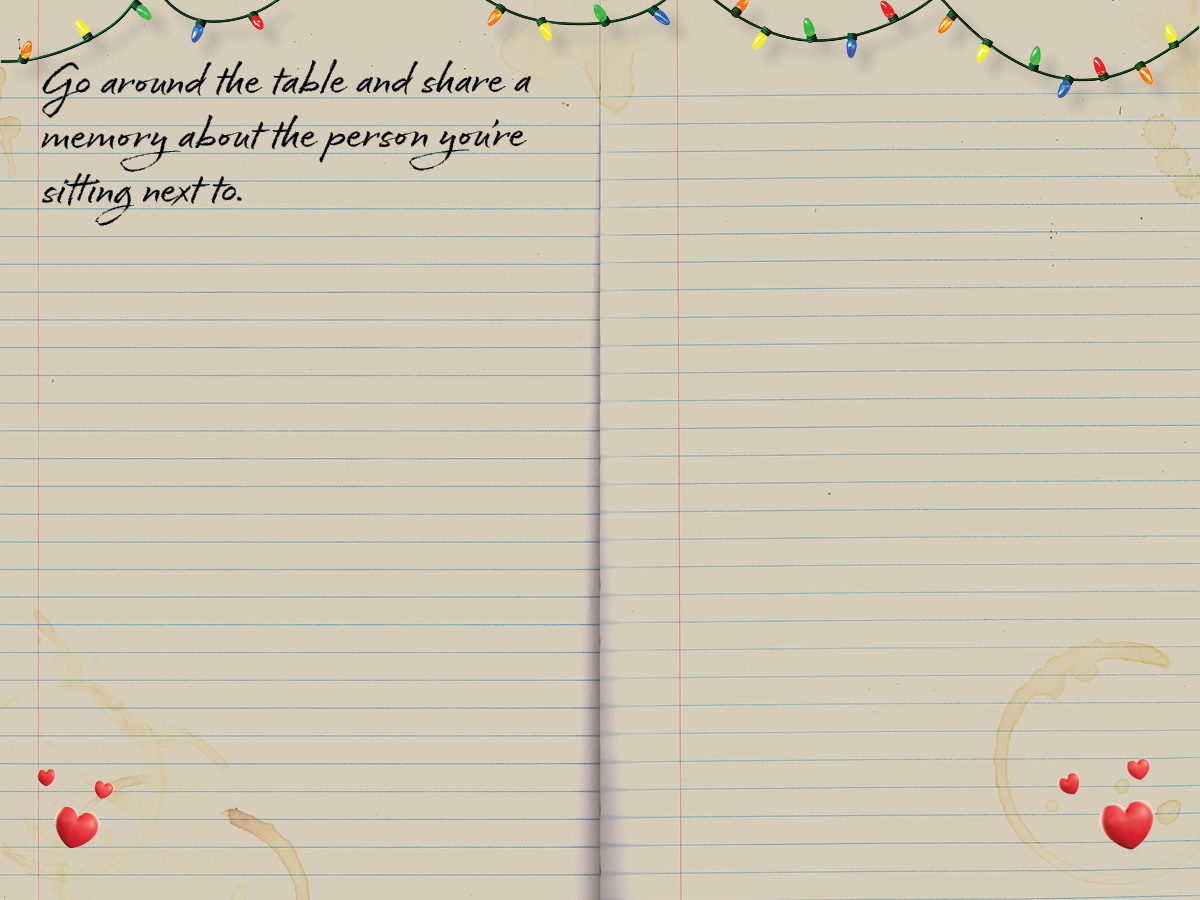 Go around the table and share a
memory about the person you're
sitting next to.